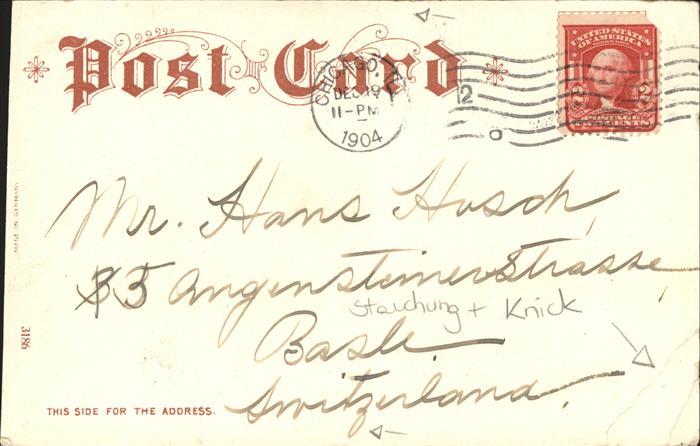 Post Card
UNITED STATES
OF AMERICA
CHICAGO, ILL
DEC 19
11-PM
1904
2
2 2
POSTAGE
TWO CENTS
Mr. Hans Hosch,
35 Angensteinerstrasse,
Stauchung + Knick
Basle
Switzerland.
MADE IN GERMANY
3186
THIS SIDE FOR THE ADDRESS.